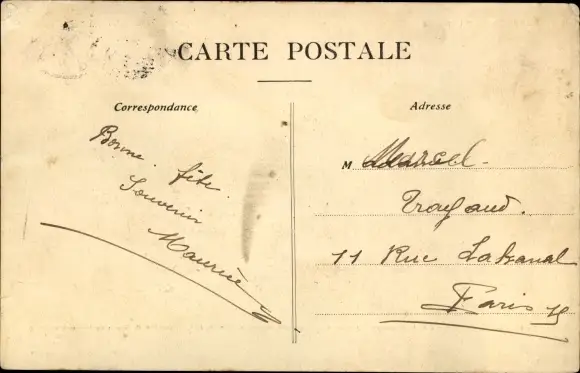 CARTE POSTALE
Correspondance
Bonne fête.
Souvenir
Maurice
Adresse
M Marcel
11 Rue Lakanal
Paris 15